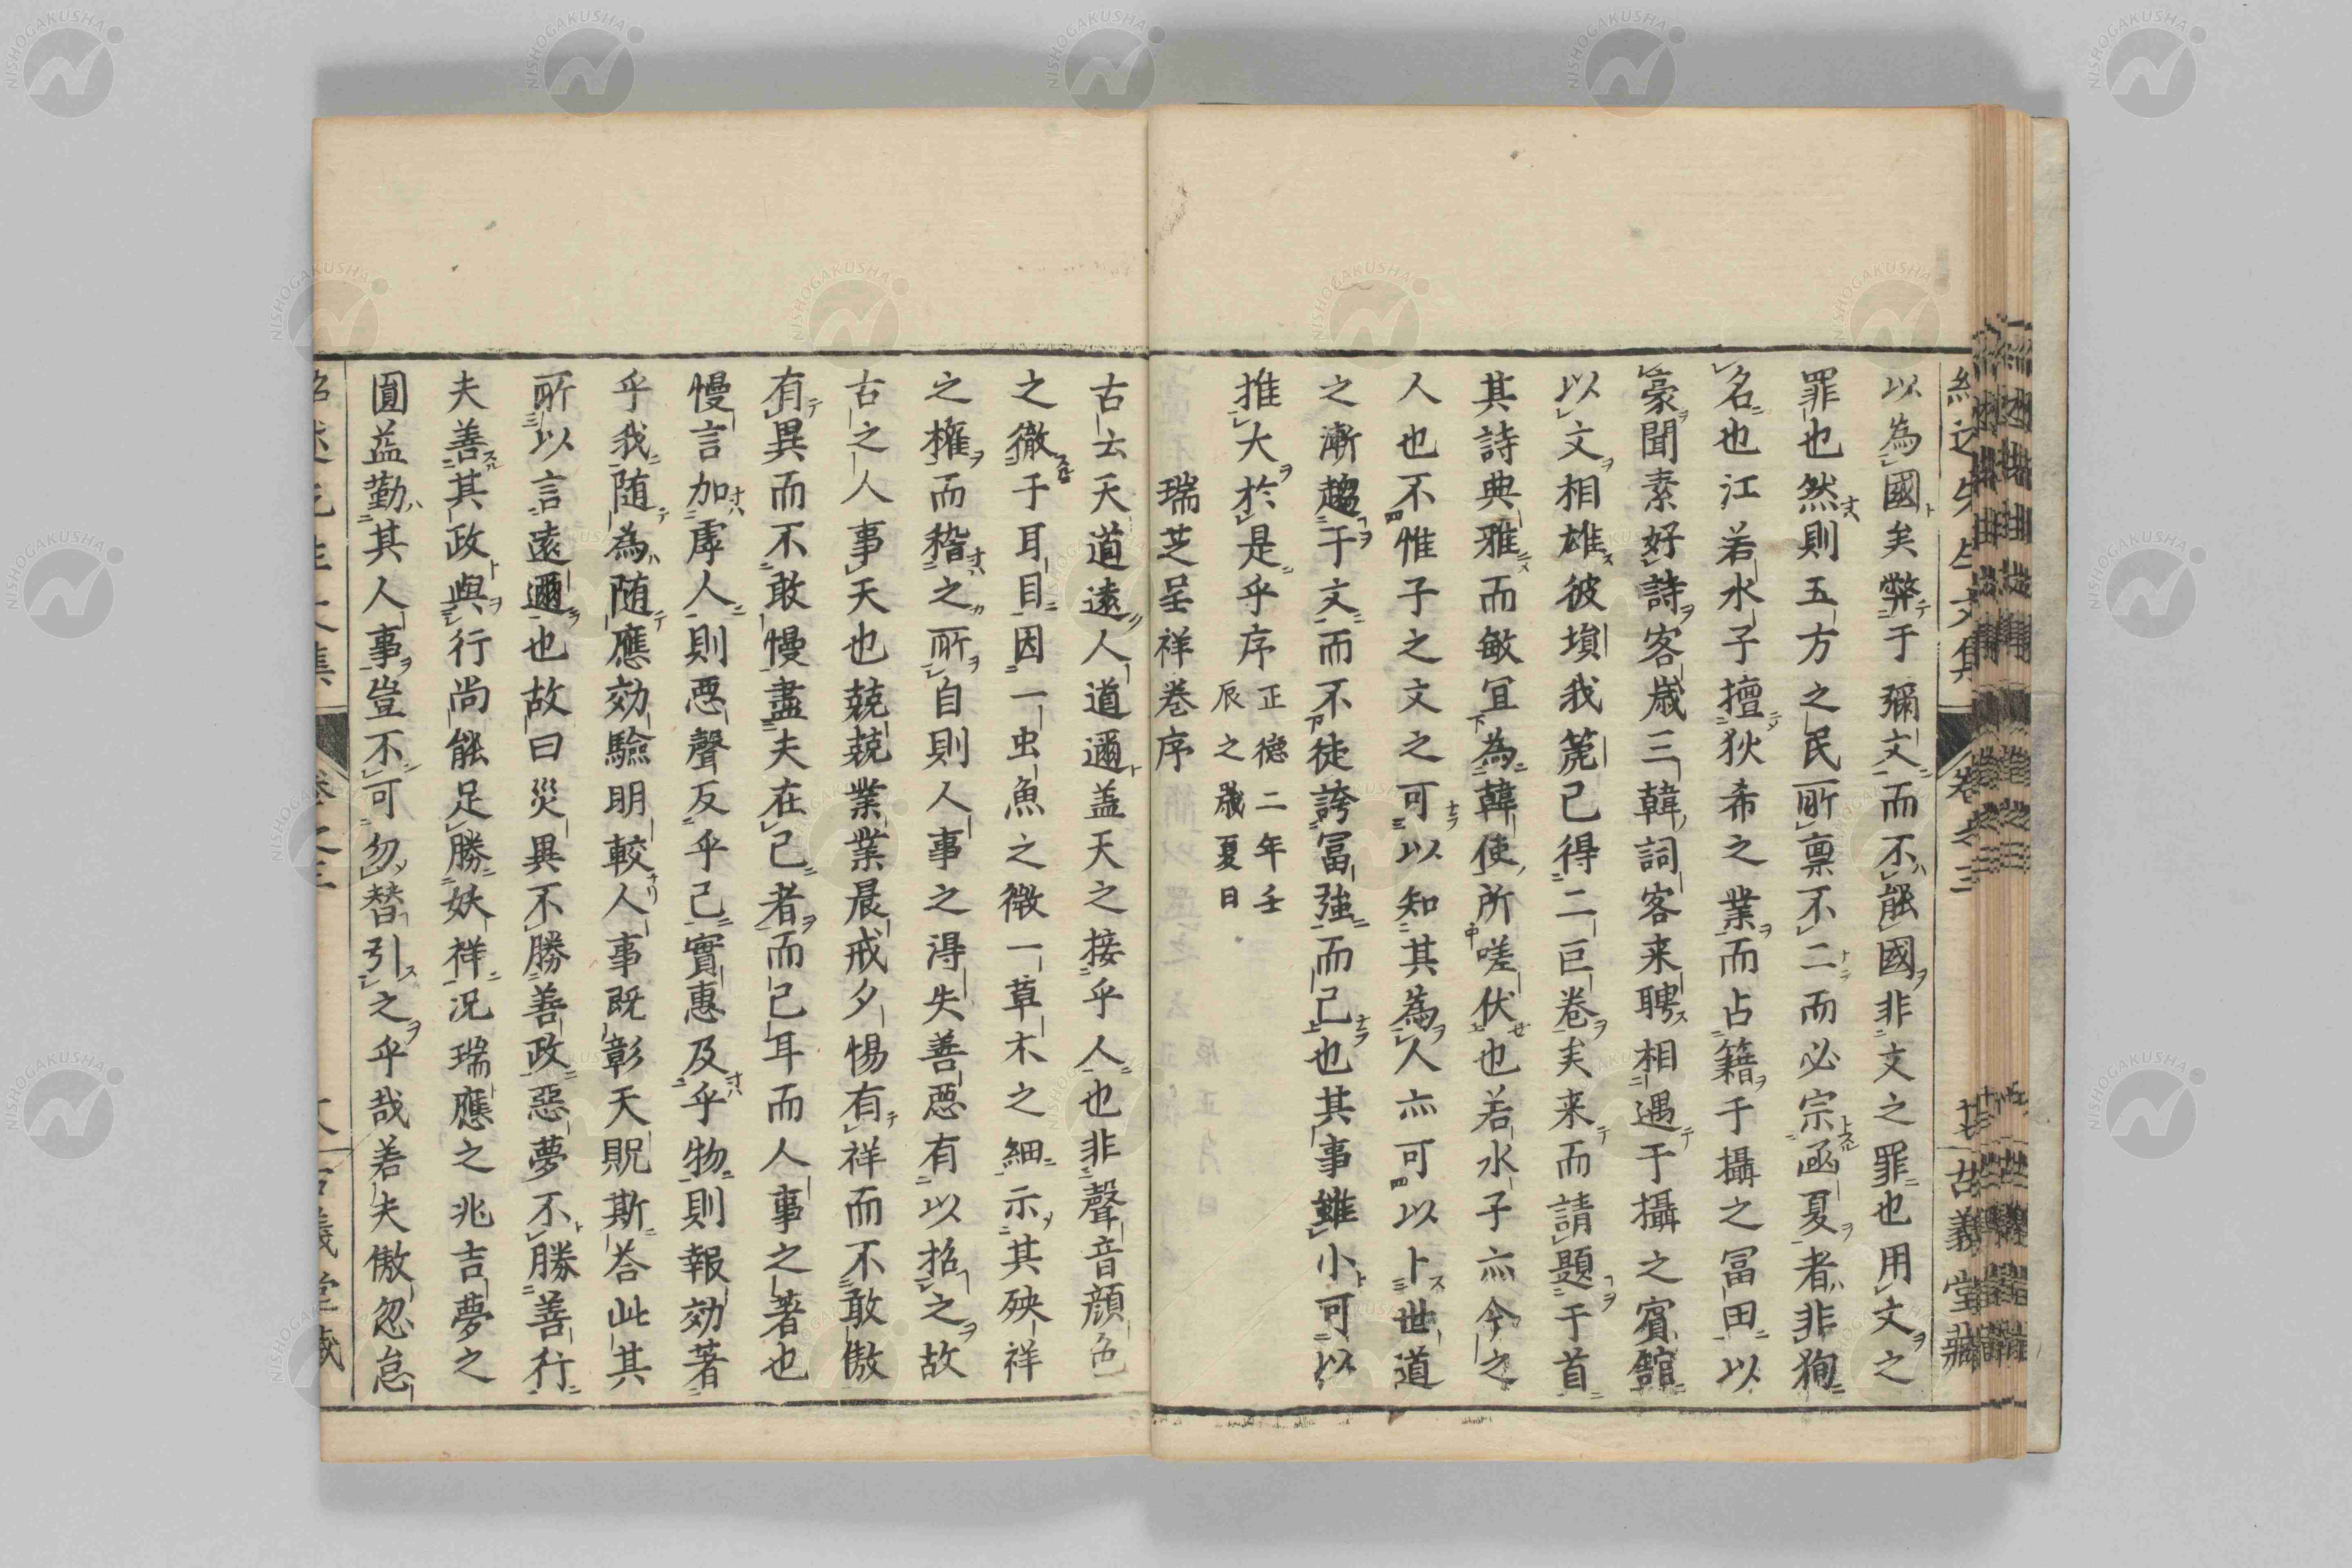 以為國矣弊于彌文而不能國非文之罪也用文之
罪也然則五方之民所稟不二而必宗函夏者非狥
名也江若水子擅狄希之業而占籍于攝之冨田以
豪聞素好詩客歲三韓詞客来聘相遇于攝之賓館
以文相雄彼塤我箎已得二巨卷矣来而請題于首
其詩典雅而敏冝為韓使所嗟伏也若水子亦今之
人也不惟子之文之可以知其為人亦可以卜世道
之漸趨于文而不徒誇冨強而已也其事雖小可以
推大於是乎序正德二年壬
辰之歲夏日
瑞芝呈祥卷序
古云天道遠人道邇盖天之接乎人也非聲音顔色
之徹于耳目因一虫魚之微一草木之細示其殃祥
之權而稽之所自則人事之得失善悪有以招之故
古之人事天也兢兢業業晨戒夕惕有祥而不敢傲
有異而不敢慢盡夫在己者而已耳而人事之著也
慢言加虖人則悪聲反乎己實惠及乎物則報効著
乎我随為随應効驗明較人事既彰天貺斯荅此其
所以言遠邇也故曰災異不勝善政惡夢不勝善行
夫善其政與行尚能足勝妖祥况瑞應之兆吉夢之
圓益勤其人事豈不可勿替引之乎哉若夫傲忽怠
卷之三
十七
古義堂藏